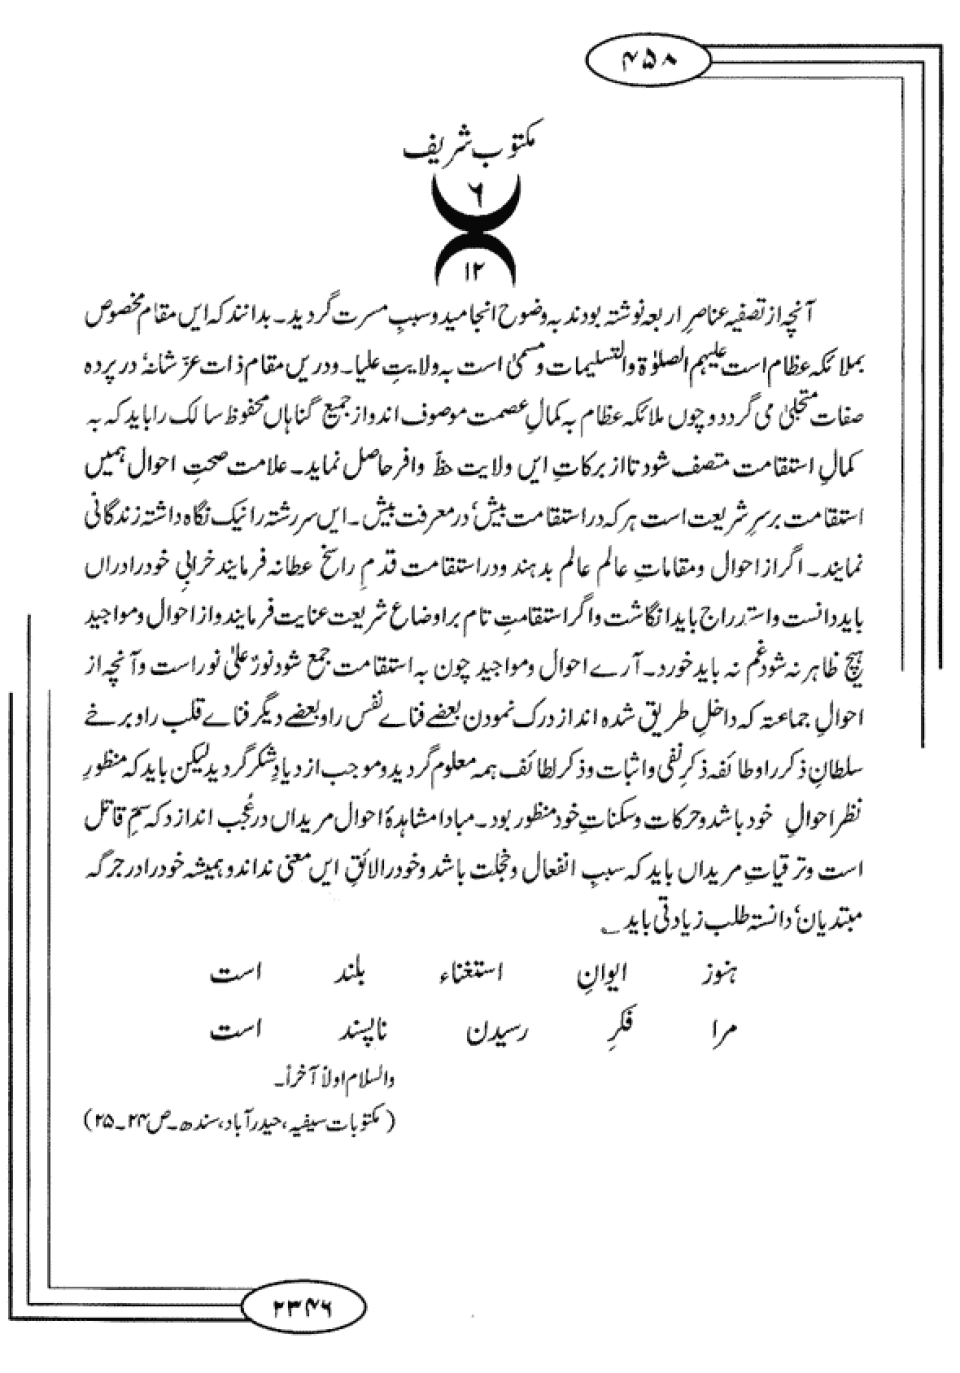 ۴۵۸
مکتوب شریف
۶
۱۲
آنچہ از تصفیہ عناصرِ اربعہ نوشتہ بودند بہ وضوح انجامید و سببِ مسرت گردید۔ بدانند کہ ایں مقام مخصوص
بملائکہ عظام است علیہم الصلوٰۃ والتسلیمات و مسمیٰ است بہ ولایتِ علیا۔ و دریں مقام ذات عزّ شانہٗ در پردہ
صفات متجلیٰ می گردد و چوں ملائکہ عظام بہ کمالِ عصمت موصوف اند و از جمیع گناہاں محفوظ سالک را باید کہ بہ
کمالِ استقامت متصف شود تا از برکاتِ ایں ولایت حظّ وافر حاصل نماید۔ علامت صحتِ احوال ہمیں
استقامت بر سرِ شریعت است ہر کہ در استقامت بیش ٗ در معرفت بیش۔ ایں سر رشتہ را نیک نگاہ داشتہ زندگانی
نمایند۔ اگر از احوال و مقاماتِ عالم عالم بدہند و در استقامت قدمِ راسخ عطا نہ فرمایند خرابیِ خود را دراں
باید دانست و استدراج باید انگاشت و اگر استقامتِ تام بر اوضاع شریعت عنایت فرمایند و از احوال و مواجید
ہیچ ظاہر نہ شود غم نہ باید خورد۔ آرے احوال و مواجید چون بہ استقامت جمع شود نورٌ علیٰ نور است و آنچہ از
احوالِ جماعتہ کہ داخلِ طریق شدہ اند از درک نمودن بعضے فناے نفس را و بعضے دیگر فناے قلب را و برخے
سلطانِ ذکر را و طائفہ ذکرِ نفی و اثبات و ذکر لطائف ہمہ معلوم گردید و موجب ازدیادِ شکر گردید لیکن باید کہ منظورِ
نظر احوالِ خود باشد و حرکات و سکناتِ خود منظور بود۔ مبادا مشاہدۂ احوال مریداں در عُجب اندازد کہ سمِ قاتل
است و ترقیاتِ مریداں باید کہ سببِ انفعال و خجلت باشد و خود را لائقِ ایں معنی نداند و ہمیشہ خود را در جرگہ
مبتدیان ٗ دانستہ طلب زیادتی باید ؎
ہنوز ایوانِ استغناء بلند است
مرا فکرِ رسیدن ناپسند است
والسلام اولاً آخراً۔
(مکتوبات سیفیہ، حیدرآباد، سندھ۔ ص ۲۴۔۲۵)
۲۳۴۶